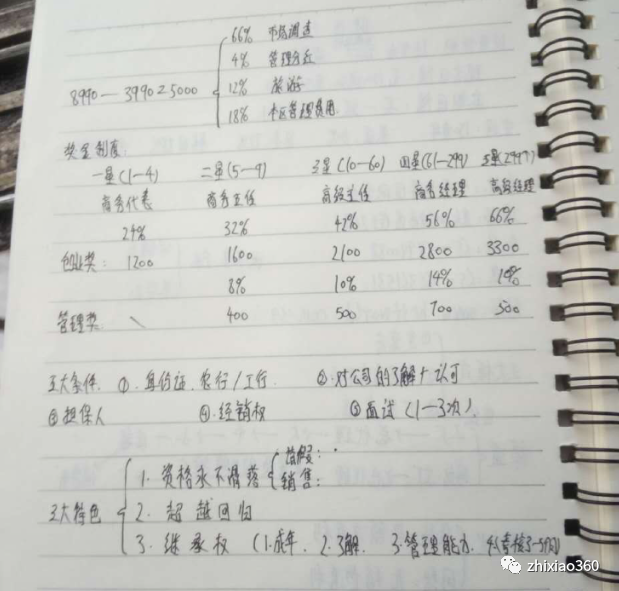 66% 市场调速
4% 管理分红
8990—3990=5000
12% 旅游
18% 小区管理费用
奖金制度:
一星(1—4) 二星(5—9) 三星(10—60) 四星(61—299) 五星
商务代表 商务主任 高级主任 商务经理 高级经理
24% 32% 42% 56% 66%
创业奖: 1200 1600 2100 2800 3300
8% 10% 14% 10%
管理奖: \ 400 500 700 500
五大条件. ①. 身份证. 农行/工行. ②.对公司的了解+认可
③担保人 ④.经销权 ⑤面试(1—3次)
1. 资格永不滑落
请假:
销售:
三大特色 2. 超越回归
3. 继承权 (1.成年. 2.了解. 3.管理能力.
zhixiao360